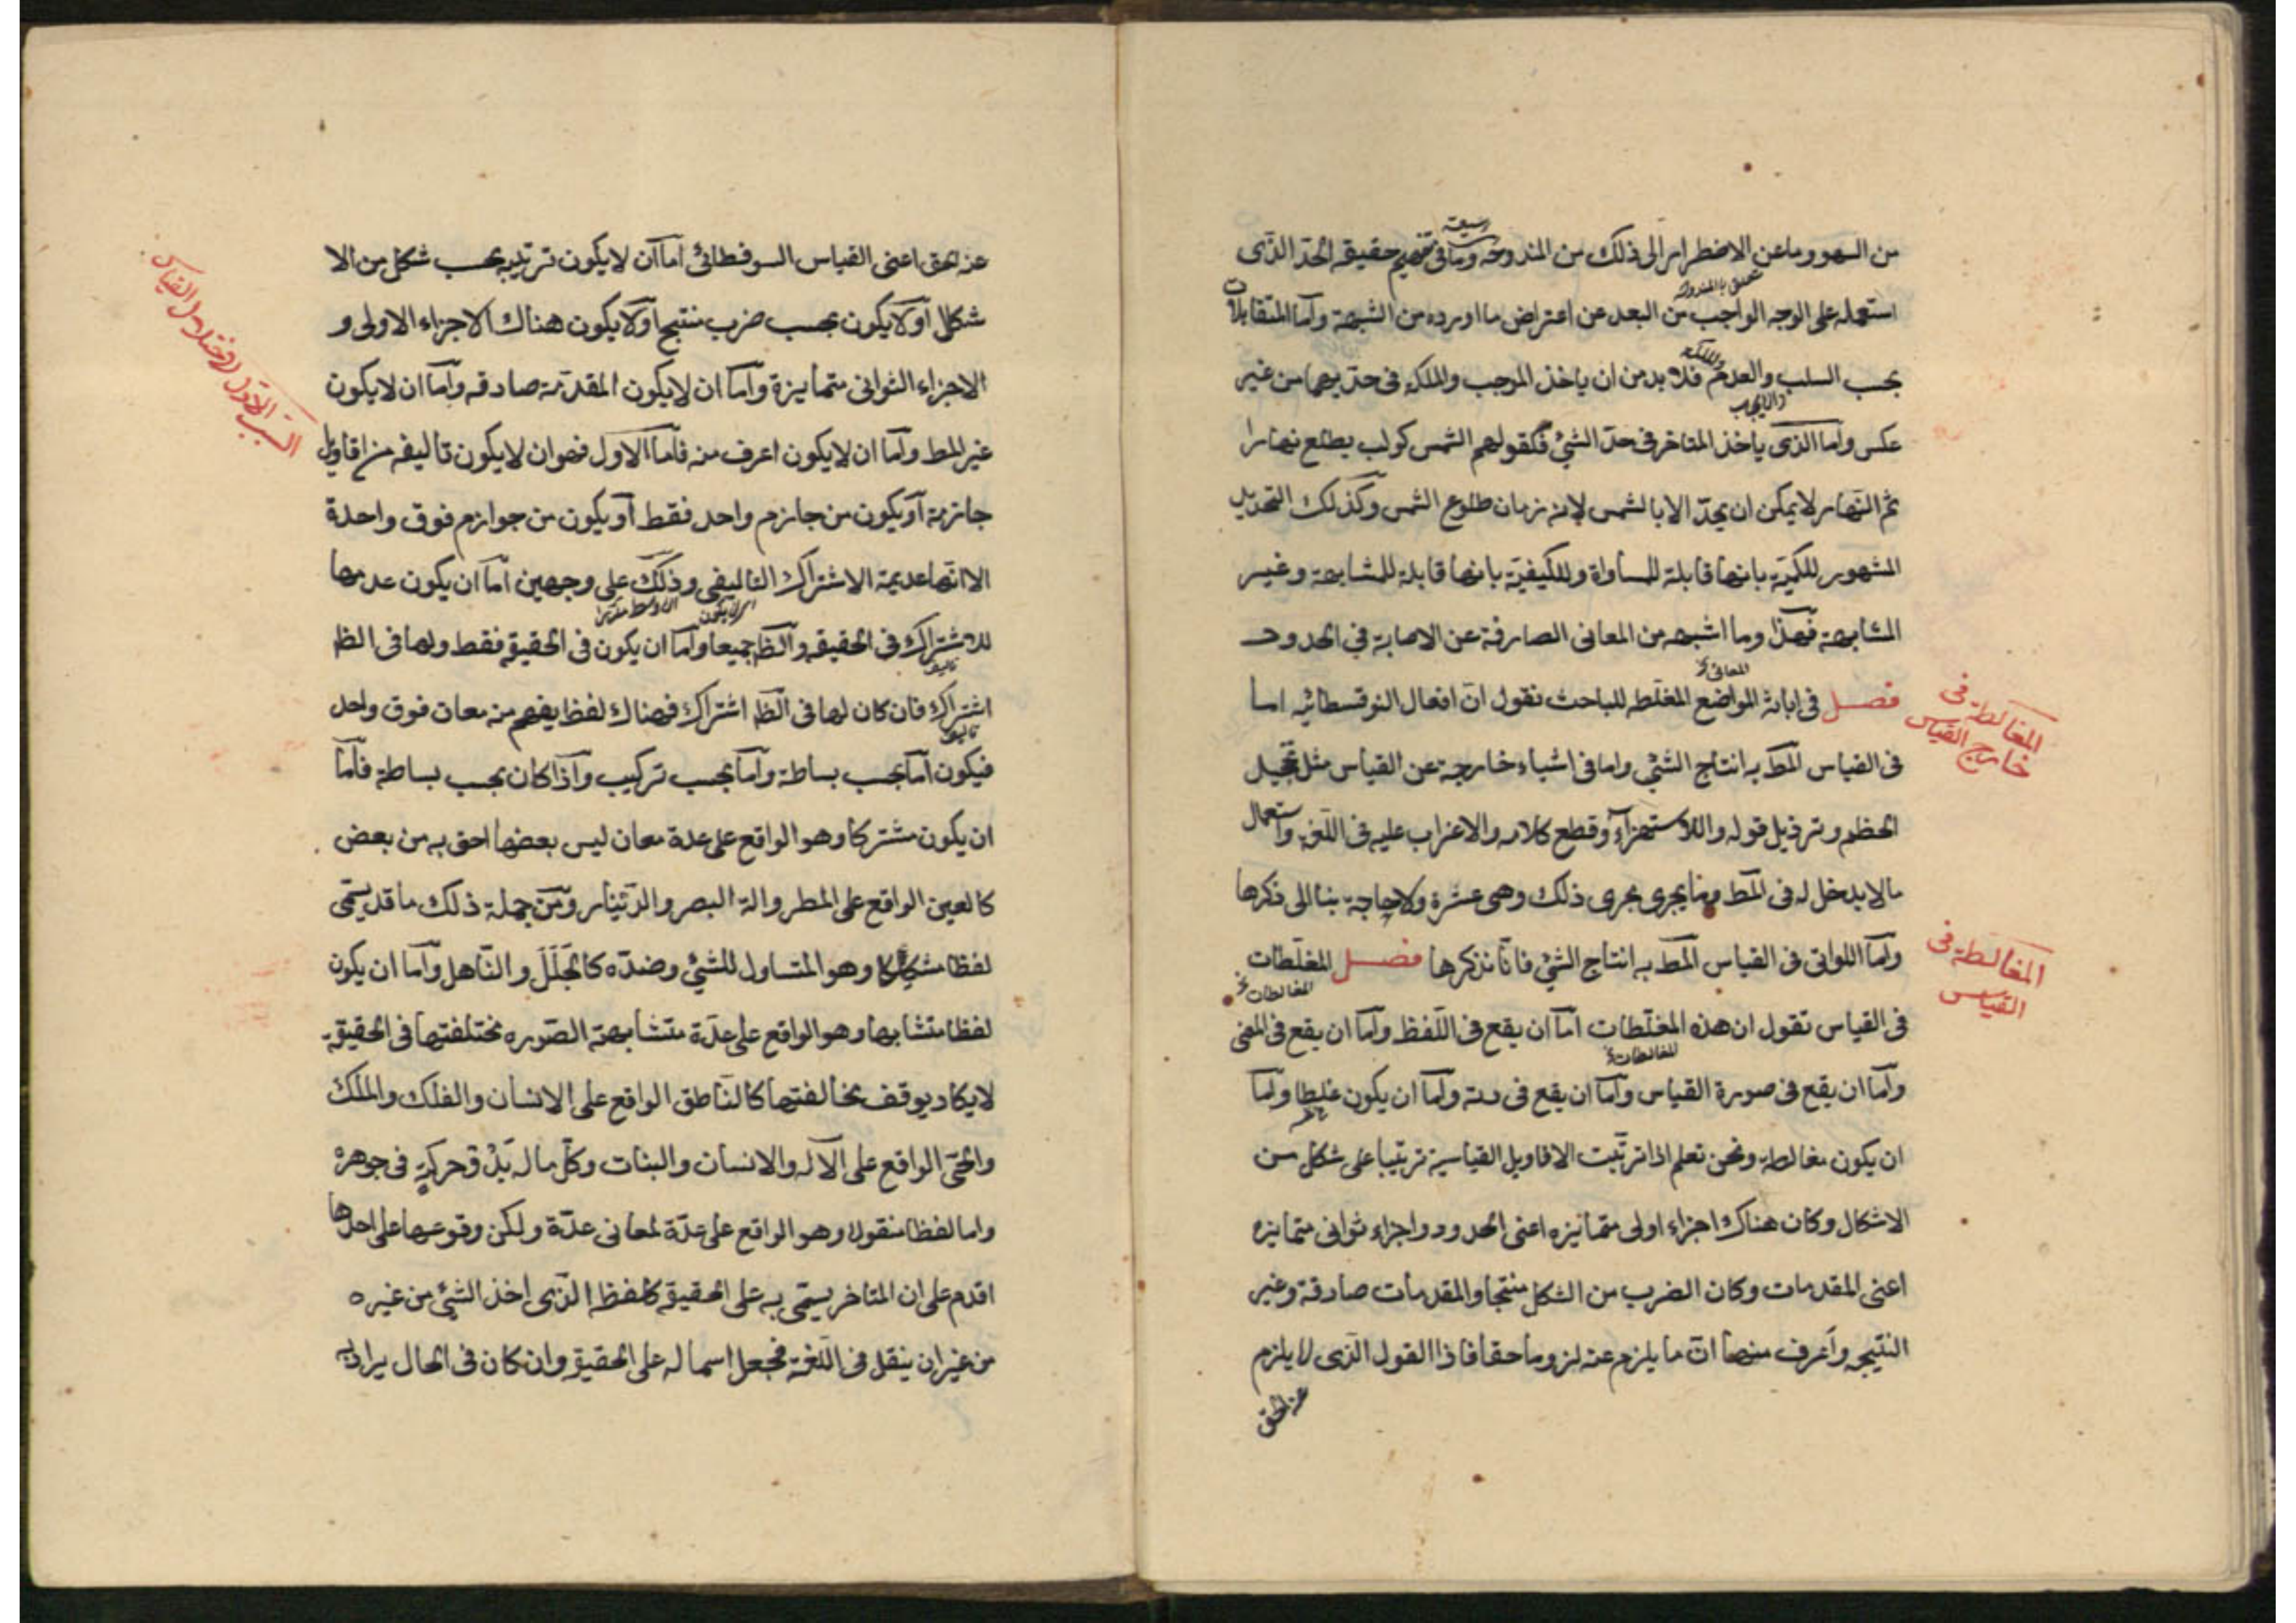 من السهو وما عن الاضطرار الى ذلك من المندوحة وما فى تفهيم حقيقه الحد الذى
استعمله على الوجه الواجب من البعد عن اعتراض ما اورده من الشبهة وأما المتقابلات
بحسب السلب والعدم فلا بد من ان ياخذ الموجب والملكه فى حديهما من غير
والملكة
والايجاب
عكس واما الذى ياخذ المتاخر فى حد الشئ فكقولهم الشمس كوكب يطلع نهارا
ثم النهار لا يمكن ان يحد الا بالشمس لانه زمان طلوع الشمس وكذلك التحديد
المشهور للكمية بانها قابلة للمساواة وللكيفية بانها قابلة للمشابهة وغير
المشابهة فهذا وما اشبهه من المعانى الصارفة عن الاصابة في الحدود
المعانى
فصل فى ابانة المواضع المغلطه للباحث نقول ان افعال السوفسطائيه اما
المغالطة فى
خارج القياس
فى القياس المط به انتاج الشئ واما فى اشياء خارجه عن القياس مثل تخجيل
الخظم وترذيل قوله والاستهزاء وقطع كلامه والاغراب عليه فى اللغة واستعمال
مالا يدخل له فى المط وما يجرى مجرى ذلك وهى عشرة ولا حاجة بنا الى ذكرها
وأما اللواتى فى القياس المط به انتاج الشئ فانا نذكرها فصل المغلطات
المغالطة فى
القياس
المغالطات
فى القياس نقول ان هذه المغلطات اما ان يقع فى اللفظ واما ان يقع فى المعنى
المغالطات
واما ان يقع فى صورة القياس واما ان يقع فى مادته واما ان يكون غلطا واما
ان يكون مغالطه ونحن نعلم اذا ترتبت الاقاويل القياسية ترتيبا على شكل من
الاشكال وكان هناك اجزاء اولى متمايزه اعنى الحدود واجزاء ثوانى متمايزه
اعنى المقدمات وكان الضرب من الشكل منتجا والمقدمات صادقة وغير
النتيجه وأعرف منها ان ما يلزم عنه لزوما حقا فاذا القول الذى لا يلزم
عنه الحق
عنه الحق اعنى القياس السوفطائى اما ان لا يكون ترتيبه بحسب شكل من الا
شكال أو لا يكون بحسب ضرب منتج أو لا يكون هناك الاجزاء الاولى و
السبب الاول لاختلال القياس
الاجزاء الثوانى متمايزة واما ان لا يكون المقدمة صادقه واما ان لا يكون
غير المط واما ان لا يكون اعرف منه فاما الاول فهو ان لا يكون تاليفه من اقاويل
جازمة أو يكون من جازم واحد فقط أو يكون من جوازم فوق واحدة
الا انها عديمة الاشتراك التاليفى وذلك على وجهين اما ان يكون عدمها
للاشتراك فى الحقيقه والظ جميعا واما ان يكون فى الحقيقة فقط ولها فى الظ
تاليف
اشتراك فان كان لها فى الظ اشتراك فهناك لفظ يفهم منه معان فوق واحد
تاليف
فيكون اما بحسب بساطة واما بحسب تركيب واذا كان بحسب بساطة فاما
ان يكون مشتركا وهو الواقع على عدة معان ليس بعضها احق به من بعض
كالعين الواقع على المطر والة البصر والدينار ومن جملة ذلك ما قد يسمى
لفظا مشككا وهو المتساول للشئ وضده كالجلل والناهل واما ان يكون
لفظا متشابها وهو الواقع على عدة متشابهة الصوره مختلفتها فى الحقيقة
لا يكاد يوقف مخالفتها كالناطق الواقع على الانسان والفلك والملك
والحى الواقع على الآله والانسان والنبات وكل ماله بدْو حركةٍ فى جوهره
واما لفظا منقولا وهو الواقع على عدة لمعانى عدة ولكن وقوعها على احدها
اقدم على ان المتاخر يسمى به على الحقيقه كلفظه الذى اخذ الشئ من غيره
من غير ان ينقل فى اللغة فجعل اسما له على الحقيقة وان كان فى الحال يراد به